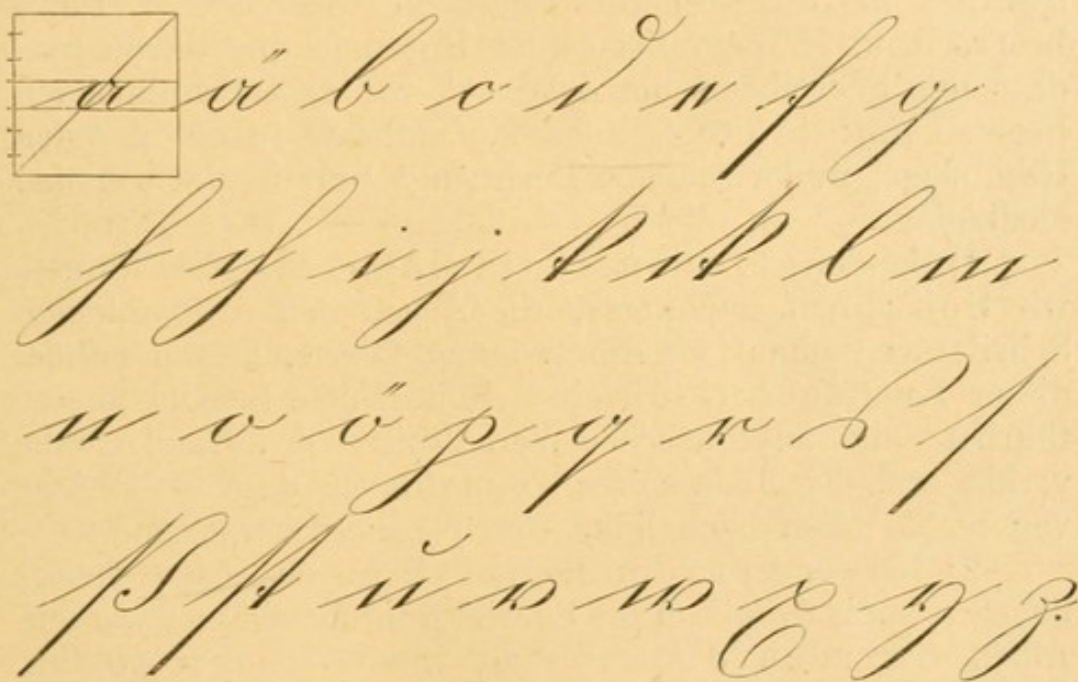 a ä b c d e f g
h ch i j k ck l m
n o ö p q r s ſ
ß ſt u v w x y z